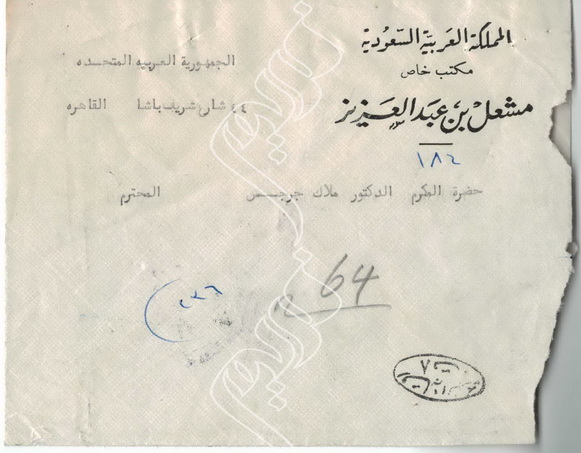 المملكة العربية السعودية
مكتب خاص
مشعل بن عبد العزيز
١٨٤
الجمهورية العربيه المتحده
٤٤ شارع شريف باشا القاهره
حضرة المكرم الدكتور ملاك جرجس المحترم
64
٧